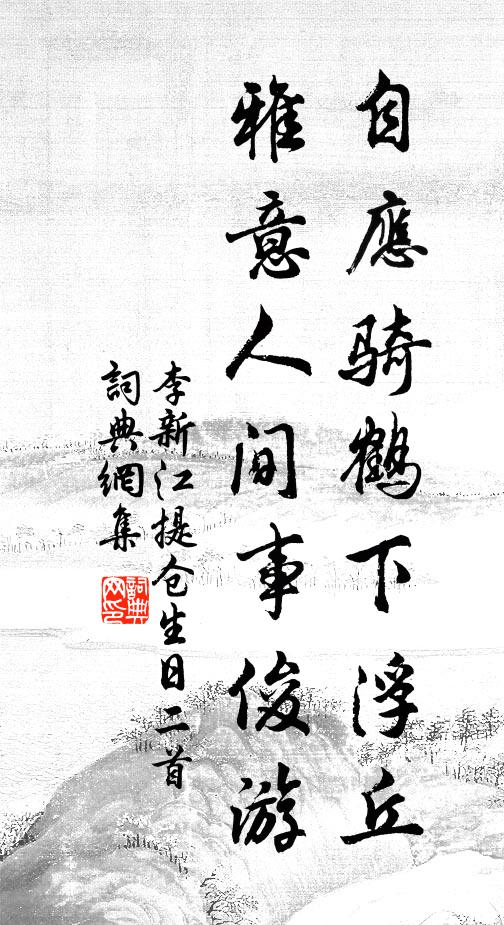 自應騎鶴下浮丘
雅意人間事俊游
李新江提仓生日二首
詞典網集
詞典网印